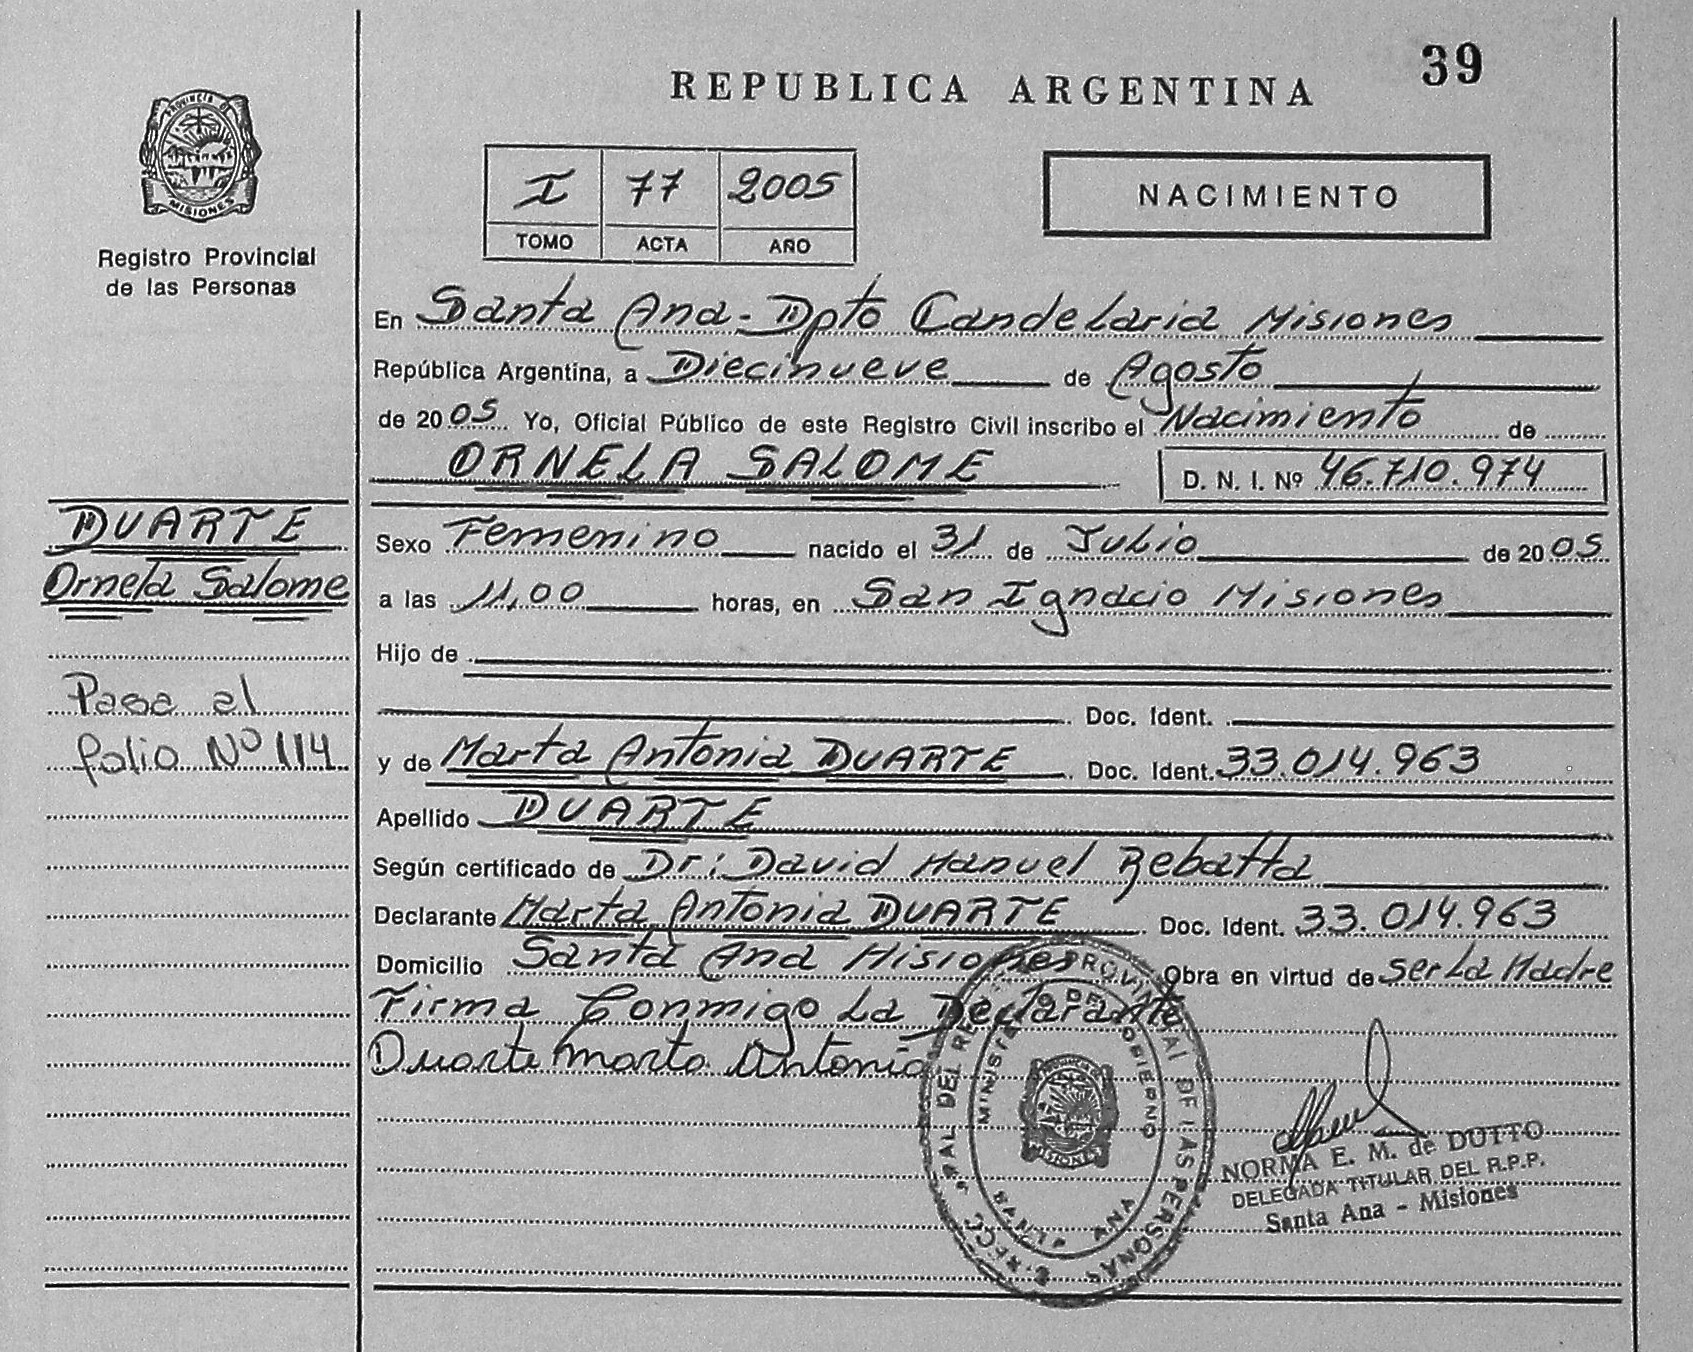 39
REPUBLICA ARGENTINA
PROVINCIA DE
MISIONES
Registro Provincial
de las Personas
I 77 2005
TOMO ACTA AÑO
NACIMIENTO
En Santa Ana - Dpto Candelaria Misiones
República Argentina, a Diecinueve de Agosto
de 2005 Yo, Oficial Público de este Registro Civil inscribo el Nacimiento de
ORNELA SALOME D. N. I. Nº 46.710.974
DUARTE
Ornela Salome
Sexo Femenino nacido el 31 de Julio de 2005
a las 11,00 horas, en San Ignacio Misiones
Hijo de
Doc. Ident.
Pasa al
folio Nº 114
y de Marta Antonia DUARTE Doc. Ident. 33.014.963
Apellido DUARTE
Según certificado de Dr: David Manuel Rebatta
Declarante Marta Antonia DUARTE Doc. Ident. 33.014.963
Domicilio Santa Ana Misiones Obra en virtud de ser La Madre
Firma Conmigo La Declarante
Duarte Marta Antonia
PROVINCIAL DE LAS PERSONAS
MINISTERIO DE GOBIERNO
MISIONES
SANTA ANA
NORMA E. M. de DUTTO
DELEGADA TITULAR DEL R.P.P.
Santa Ana - Misiones